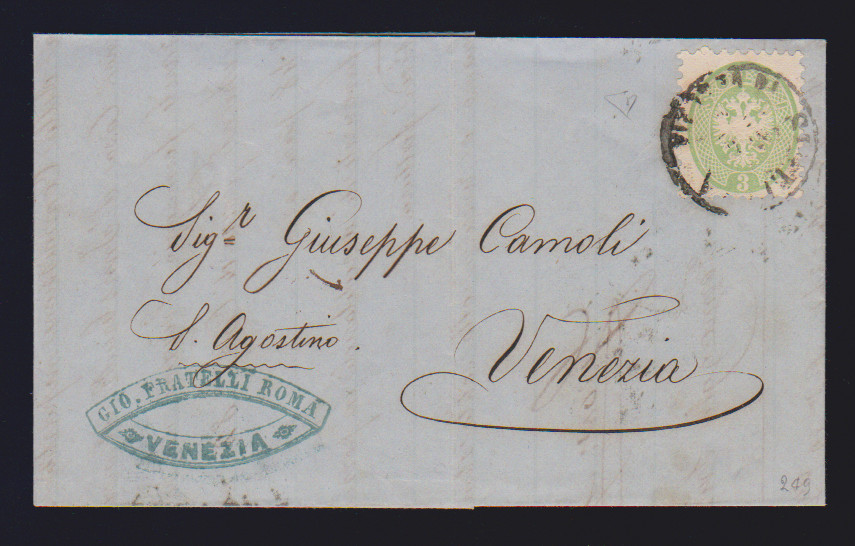 3
Sigr Giuseppe Camoli
S. Agostino.
Venezia
GIO. FRATELLI ROMA
VENEZIA
249